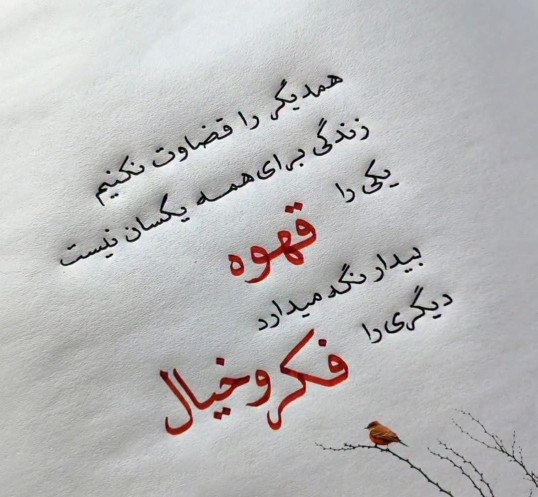 همدیگر را قضاوت نکنیم
زندگی برای همه یکسان نیست
یکی را
قهوه
بیدار نگه میدارد
دیگری را
فکر و خیال